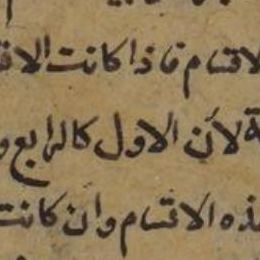 لاقسام فاذا كانت الاق
ة لأن الاول كالرابع و
ذه الاقسام وان كانت